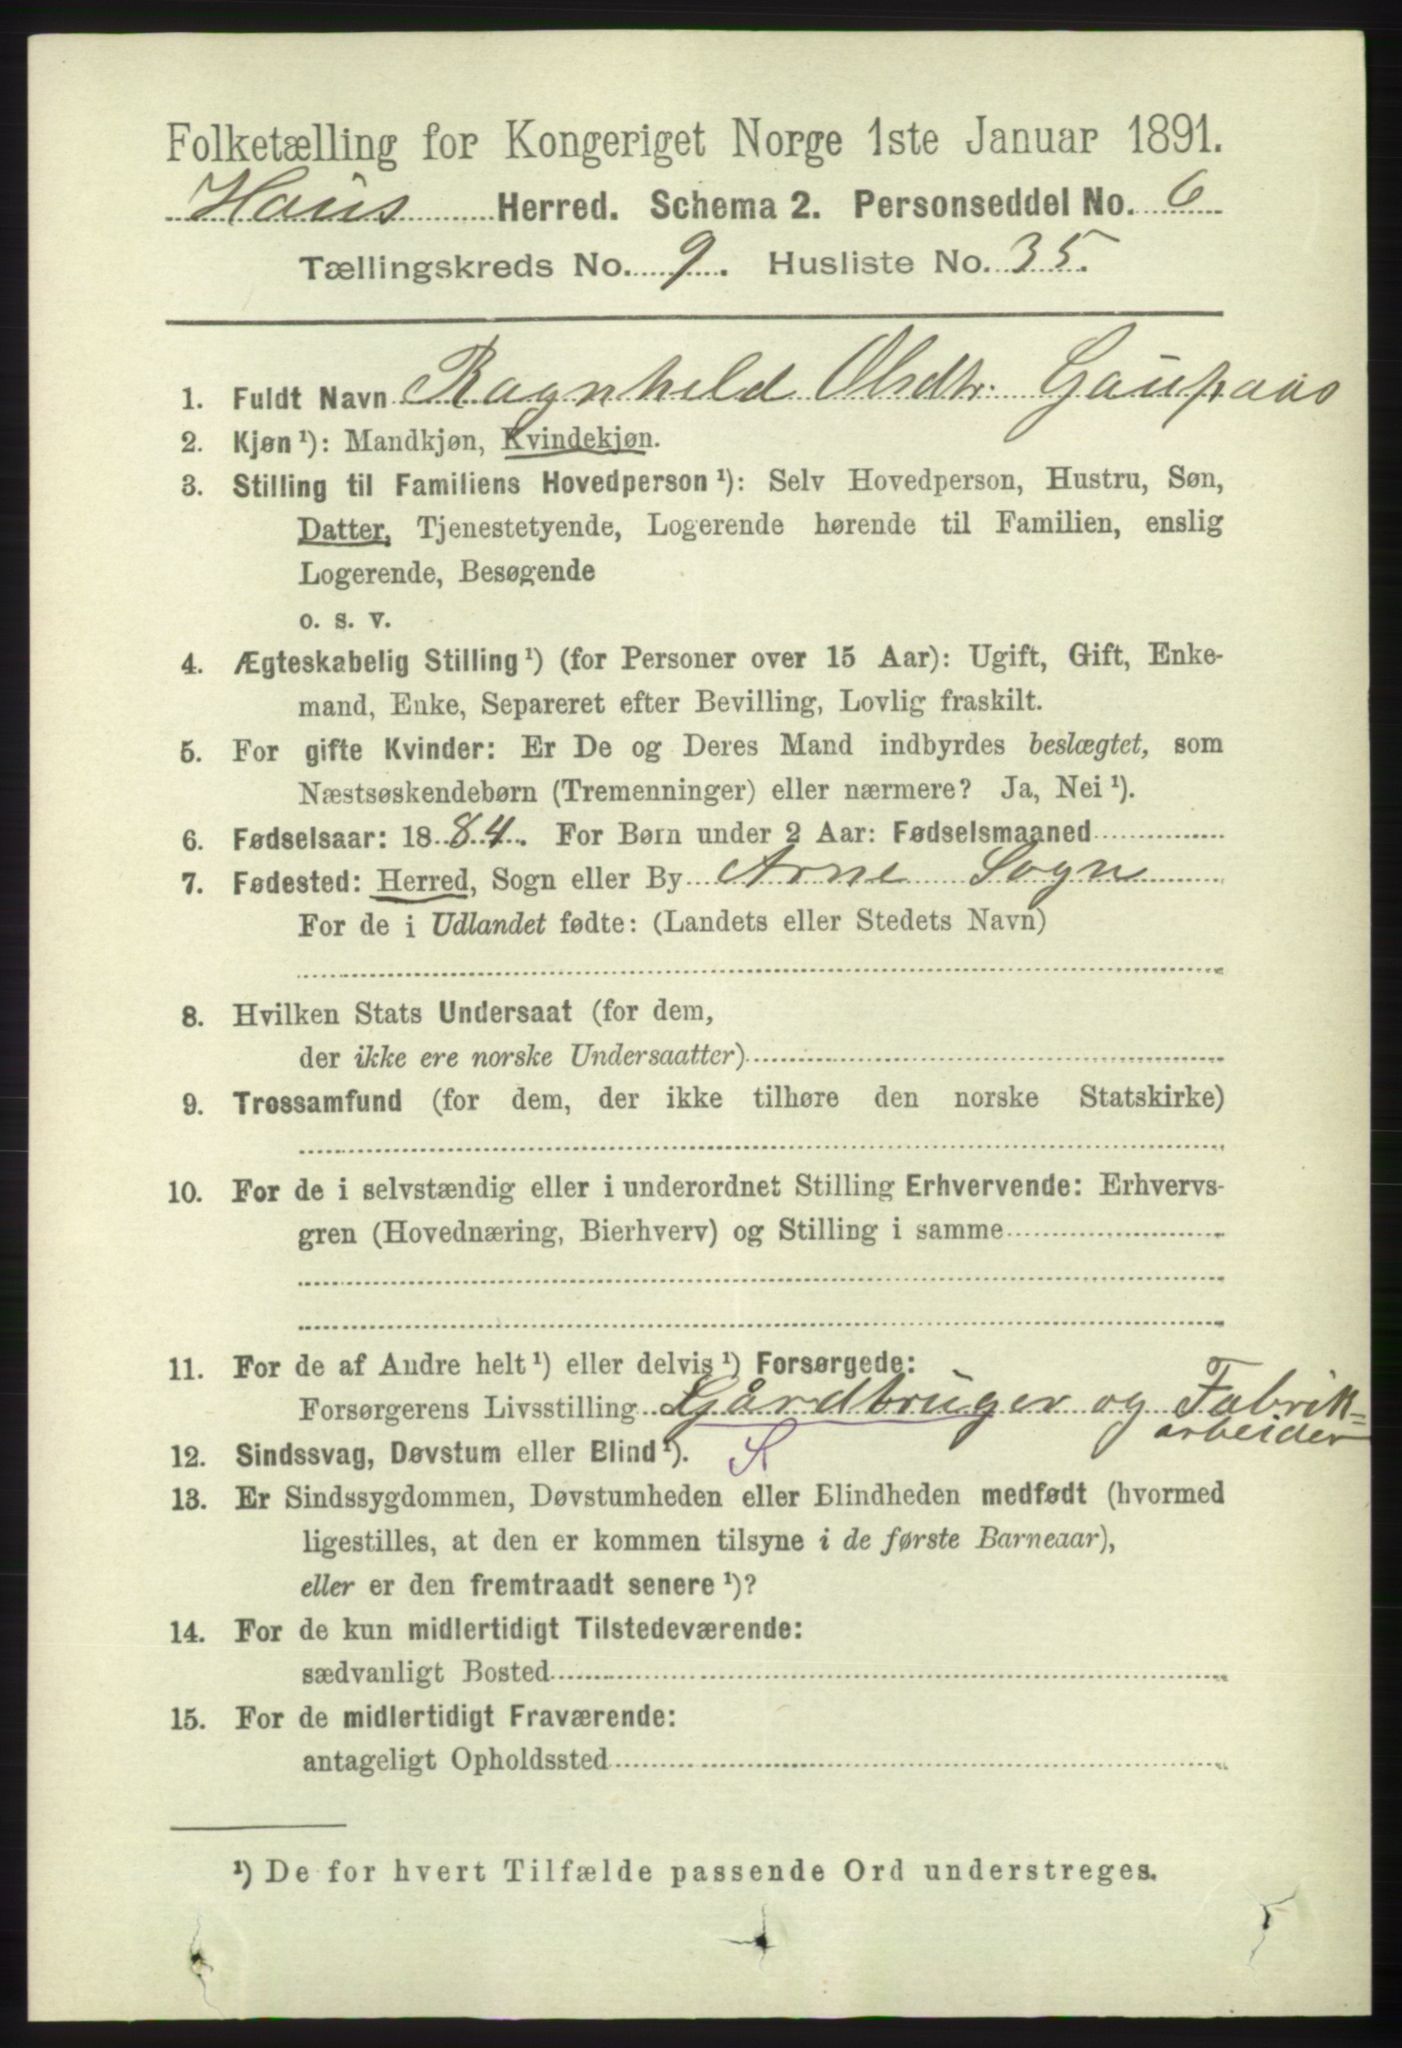 Folketælling for Kongeriget Norge 1ste Januar 1891.
Haus Herred. Schema 2. Personseddel No. 6
Tællingskreds No. 9. Husliste No. 35.
1. Fuldt Navn Ragnhild Olsdtr. Gaupaas
2. Kjøn ¹): Mandkjøn, Kvindekjøn.
3. Stilling til Familiens Hovedperson ¹): Selv Hovedperson, Hustru, Søn,
Datter, Tjenestetyende, Logerende hørende til Familien, enslig
Logerende, Besøgende
o. s. v.
4. Ægteskabelig Stilling ¹) (for Personer over 15 Aar): Ugift, Gift, Enke-
mand, Enke, Separeret efter Bevilling, Lovlig fraskilt.
5. For gifte Kvinder: Er De og Deres Mand indbyrdes beslægtet, som
Næstsøskendebørn (Tremenninger) eller nærmere? Ja, Nei ¹).
6. Fødselsaar: 1884. For Børn under 2 Aar: Fødselsmaaned
7. Fødested: Herred, Sogn eller By Arne Sogn
For de i Udlandet fødte: (Landets eller Stedets Navn)
8. Hvilken Stats Undersaat (for dem,
der ikke ere norske Undersaatter)
9. Trossamfund (for dem, der ikke tilhøre den norske Statskirke)
10. For de i selvstændig eller i underordnet Stilling Erhvervende: Erhvervs-
gren (Hovednæring, Bierhverv) og Stilling i samme
11. For de af Andre helt ¹) eller delvis ¹) Forsørgede:
Forsørgerens Livsstilling Gårdbruger og Fabrik=
arbeider
12. Sindssvag, Døvstum eller Blind ¹).
13. Er Sindssygdommen, Døvstumheden eller Blindheden medfødt (hvormed
ligestilles, at den er kommen tilsyne i de første Barneaar),
eller er den fremtraadt senere ¹)?
14. For de kun midlertidigt Tilstedeværende:
sædvanligt Bosted
15. For de midlertidigt Fraværende:
antageligt Opholdssted
¹) De for hvert Tilfælde passende Ord understreges.